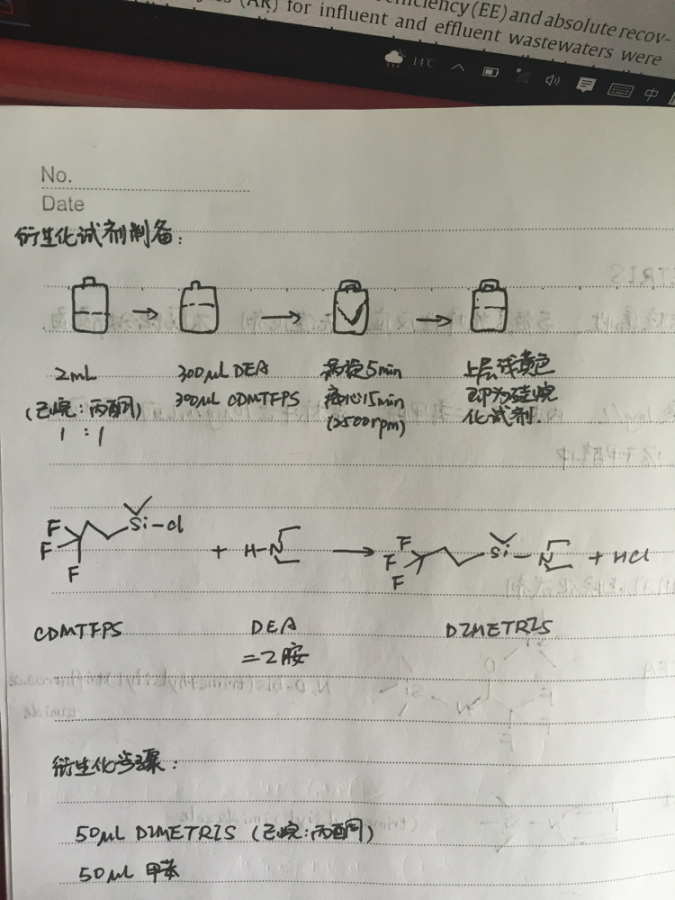 ficiency (EE) and absolute recov-
(AR) for influent and effluent wastewaters were
11℃
中
No.
Date
衍生化试剂制备:
2mL
300μL DEA
涡旋5min
上层浅黄色
(己烷:丙酮)
300μL CDMTFPS
离心15min
即为硅烷
1 : 1
(2500rpm)
化试剂.
F
F
F
Si-Cl
+ H-N
F
F
F
Si
N
+ HCl
CDMTFPS
DEA
DIMETRIS
=乙胺
衍生化步骤:
50μL DIMETRIS (己烷:丙酮)
50μL 甲苯